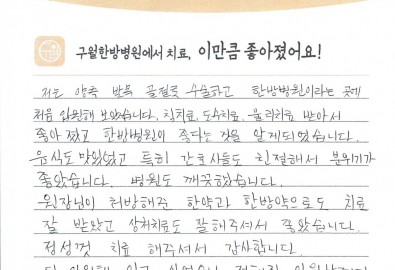 구월한방병원에서 치료, 이만큼 좋아졌어요!
저는 양쪽 발목 골절로 수술하고 한방병원이라는 곳에
처음 입원해 보았습니다. 침치료, 도수치료, 물리치료 받아서
좋아졌고 한방병원이 좋다는 것을 알게되었습니다.
음식도 맛있었고 특히 간호사들도 친절해서 분위기가
좋았습니다. 병원도 깨끗했습니다.
원장님이 처방해준 한약과 한방약으로도 치료
잘 받았고 상처치료도 잘해주셔서 좋았습니다.
정성껏 치료 해주셔서 감사합니다.